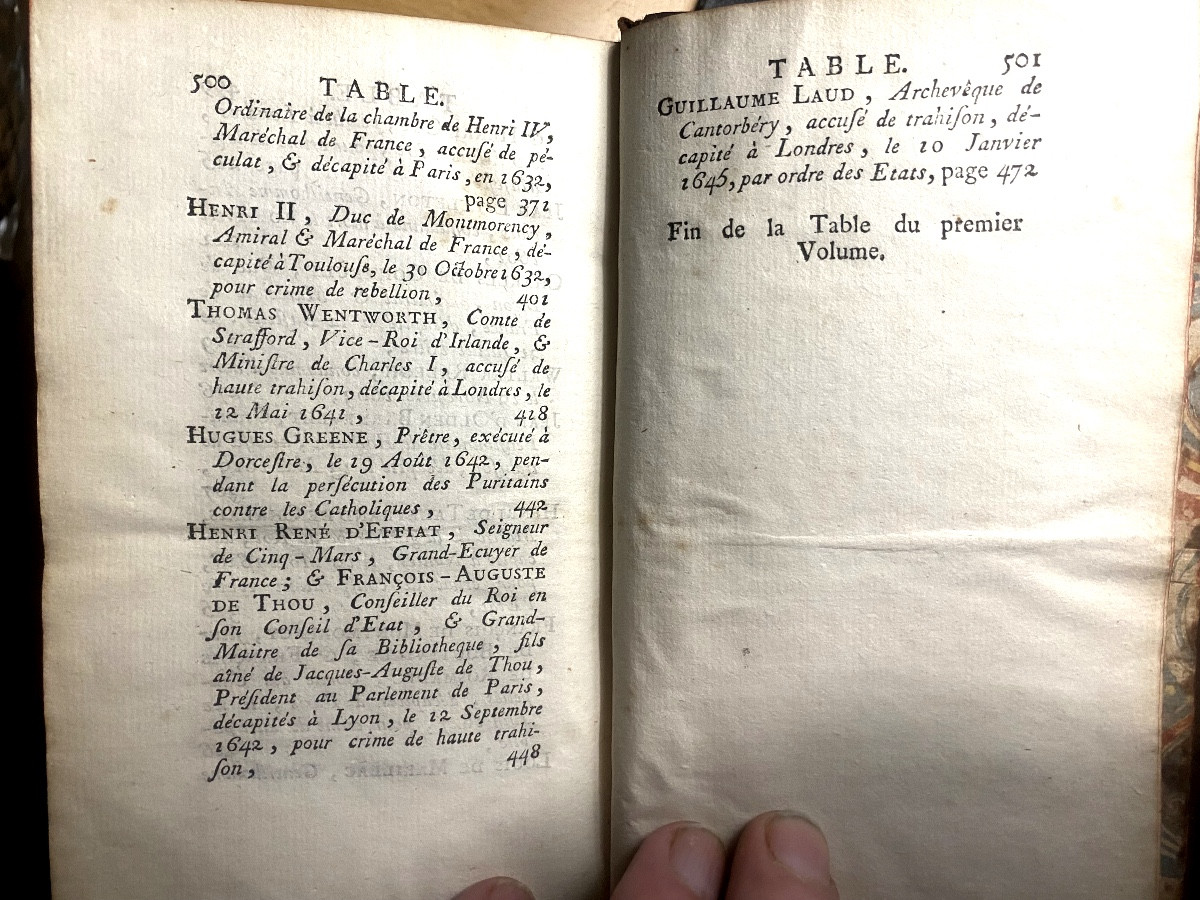 500 TABLE.
Ordinaire de la chambre de Henri IV,
Maréchal de France, accuſé de pé-
culat, & décapité à Paris, en 1632,
page 371
HENRI II, Duc de Montmorency,
Amiral & Maréchal de France, dé-
capité à Toulouſe, le 30 Octobre 1632,
pour crime de rebellion, 401
THOMAS WENTWORTH, Comte de
Strafford, Vice-Roi d'Irlande, &
Miniſtre de Charles I, accuſé de
haute trahiſon, décapité à Londres, le
12 Mai 1641, 418
HUGUES GREENE, Prêtre, exécuté à
Dorceſtre, le 19 Août 1642, pen-
dant la perſécution des Puritains
contre les Catholiques, 442
HENRI RENÉ D'EFFIAT, Seigneur
de Cinq-Mars, Grand-Ecuyer de
France; & FRANÇOIS-AUGUSTE
DE THOU, Conſeiller du Roi en
ſon Conſeil d'Etat, & Grand-
Maitre de ſa Bibliotheque, fils
aîné de Jacques-Auguſte de Thou,
Préſident au Parlement de Paris,
décapités à Lyon, le 12 Septembre
1642, pour crime de haute trahi-
ſon, 448
TABLE. 501
GUILLAUME LAUD, Archevêque de
Cantorbéry, accuſé de trahiſon, dé-
capité à Londres, le 10 Janvier
1645, par ordre des Etats, page 472
Fin de la Table du premier
Volume.